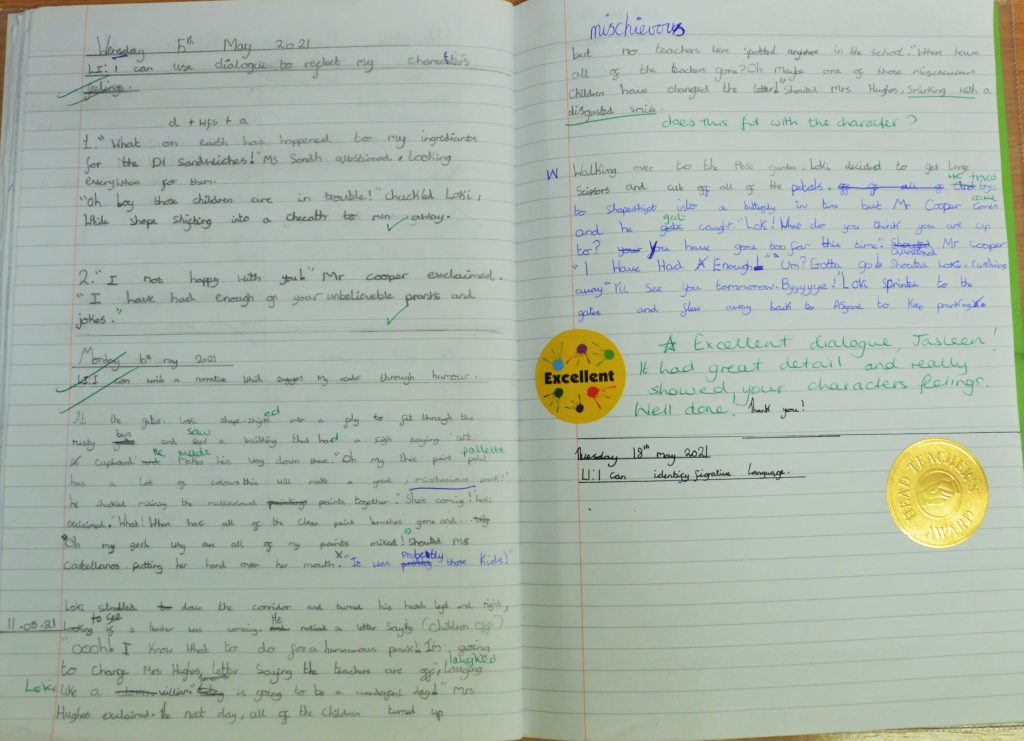 Wensday 5th May 2021
LI: I can use dialogue to reflect my character's
feelings.
d + wfs + a
1. "What on earth has happened to my ingrediants
for the DI Sandwiches!" Ms Sondh questioned, Looking
everywhere for them.
"Oh boy those children are in trouble!" chuckled Loki,
While shape shifting into a cheeath to run away.
2. "I not happy with you!" Mr cooper exclaimed.
"I have had enough of your unbelievable pranks and
jokes."
Monday 10th may 2021
LI: I can write a narrative which engages my reader through humour.
At the gates, Loki shape-shifted into a fly to fit through the
rusty bars and saw a building that had a sign saying art
cupboard He made his way down there. "Oh my this paint pallette
has a lot of colours this will make a great mischievious prank!"
he chuckled mixing the multicoloured paintings paints together. "She's coming! Loki
exclaimed, "What! Where has all of the clean paint brushes gone and...
"Oh my gosh why are all of my paints mixed!" Shouted ms
Castellanos putting her hand over her mouth. "It was Probebly those Kids!"
Loki strolled to down the corridor and turned his head left and right,
11.05.21
Looking to see if a teacher was coming. He noticed a letter saying (children off)
"oooh! I know what to do for a humourous prank! I'm going
to change Mrs Hughes, letter Saying the teachers are off", laughed
Loki like a villian! "tomorrow is going to be a wonderful day!" Mrs
Hughes exclaimed. The next day, all of the children turned up
mischievous
but no teachers were spotted anywere in the school. "Where have
all of the teachers gone? Oh Maybe one of those mischievious
Children have changed the letter!" Shouted Mrs Hughes, Smirking with a
disgusted smile.
does this fit with the character?
W Walking over to the Rose garden, Loki decided to get Large
Scissors and cut off all of the petals. off of all of He tried
to shapeshift into a butterfly in time but Mr Cooper came
and he got caught. "Loki! What do you think you are up
to? your You have gone too far this time." Shouted questioned Mr cooper
"I Have Had A Enough!" "Um? Gotta go! Shouted Loki, rushing
away "I'll See you tommorow. Byyyyye!" Loki sprinted to the
gates and flew away back to Asgard to keep pranking
Excellent
Excellent dialogue, Jasleen!
It had great detail and really
showed your characters feelings.
Well done! Thank you!
Tuesday 18th May 2021
LI: I can identify figrative language.
HEAD TEACHER'S
AWARD